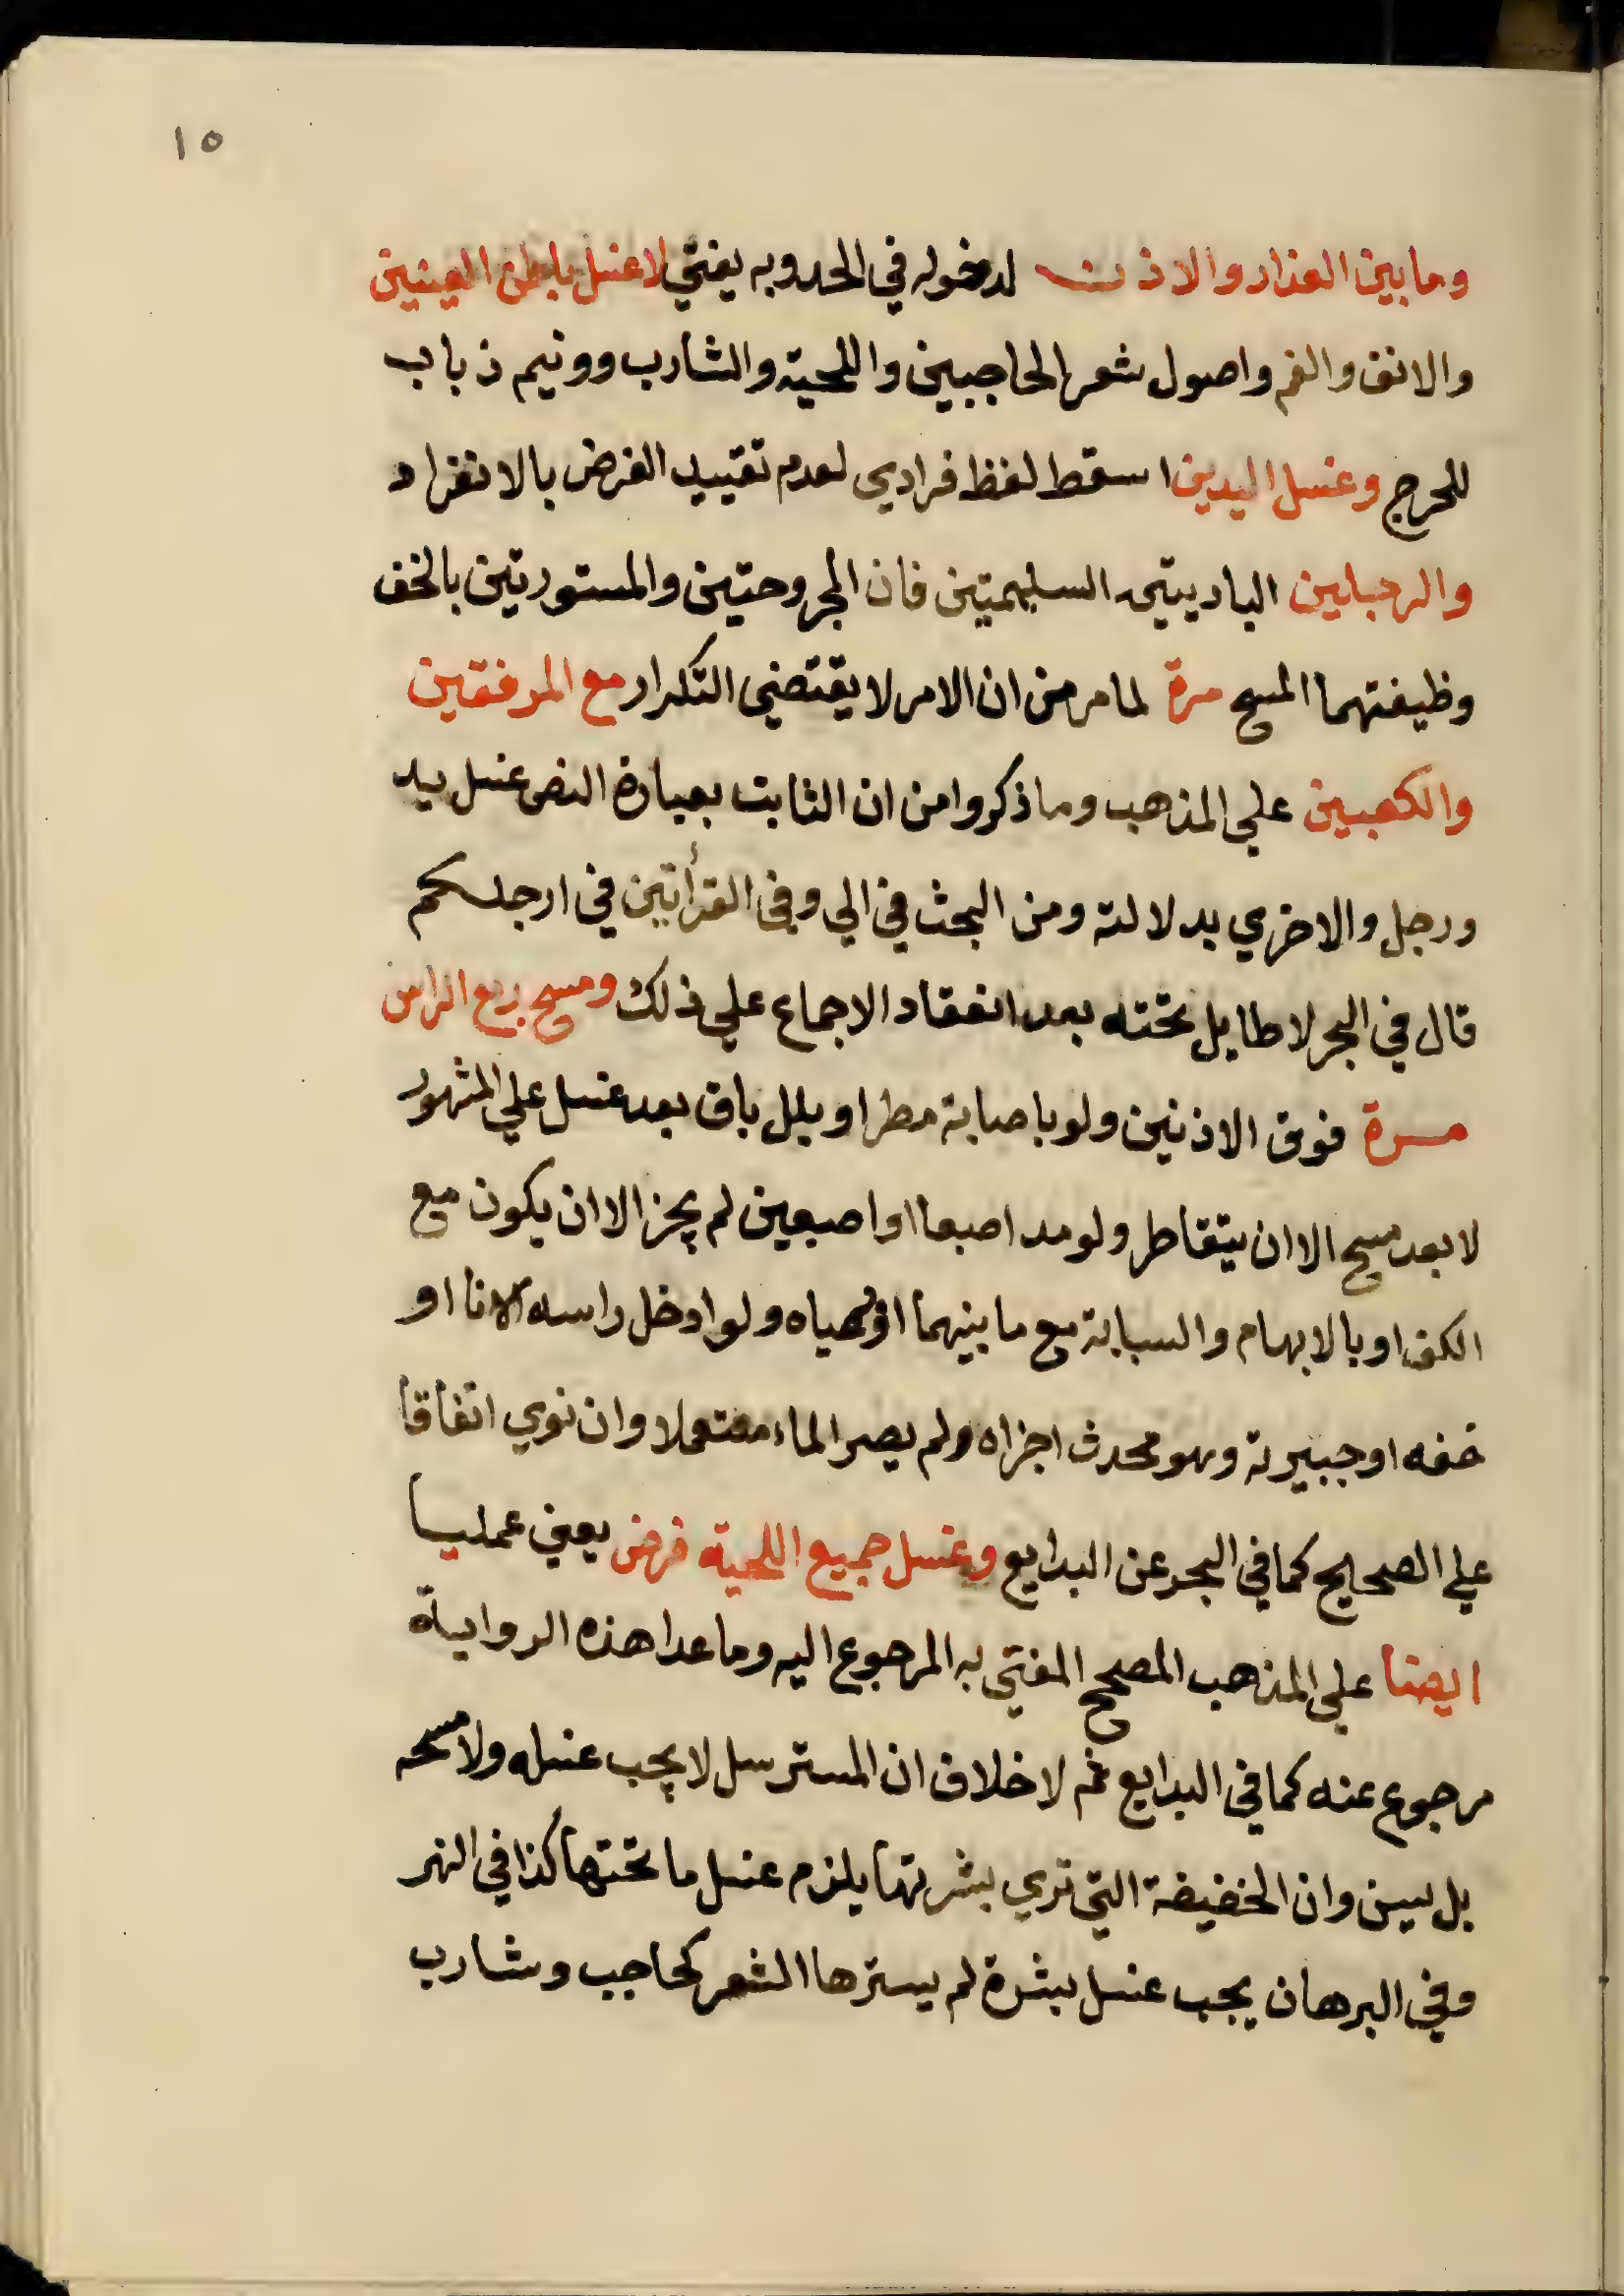 ١٥
وما بين العذار والاذن لدخوله في الحد وبه يفتي لا غسل باطن العينين
والانف والفم واصول شعر الحاجبين واللحية والشارب وونيم ذباب
للحرج وغسل اليدين اسقط لفظ فرادي لعدم تقييد الفرض بالانفراد
والرجلين الباديتين السليمتين فان المجروحتين والمستورتين بالخف
وظيفتهما المسح مرة لما مر من ان الامر لا يقتضي التكرار مع المرفقين
والكعبين علي المذهب وما ذكروا من ان الثابت بعبارة النص غسل يد
ورجل والاخري بدلالته ومن البحث في الي وفي القرأتين في ارجلكم
قال في البحر لا طايل تحته بعد انعقاد الاجماع علي ذلك ومسح ربع الراس
مرة فوق الاذنين ولو باصابة مطر او بلل باق بعد غسل علي المشهور
لا بعد مسح الا ان يتقاطر ولو مد اصبعا او اصبعين لم يجز الا ان يكون مع
الكف او بالابهام والسبابة مع ما بينهما او بمياه ولو ادخل راسه الانا او
خفه او جبيرته وهو محدث اجزاه ولم يصر الماء مستعملا وان نوي اتفاقا
علي الصحيح كما في البحر عن البدايع وغسل جميع اللحية فرض يعني عمليا
ايضا علي المذهب المصحح المفتي به المرجوع اليه وما عدا هذه الرواية
مرجوع عنه كما في البدايع ثم لا خلاف ان المسترسل لا يجب غسله ولا مسحه
بل يسن وان الخفيفة التي تري بشرتها يلزم غسل ما تحتها كذا في النهر
وفي البرهان يجب غسل بشرة لم يسترها الشعر كحاجب وشارب